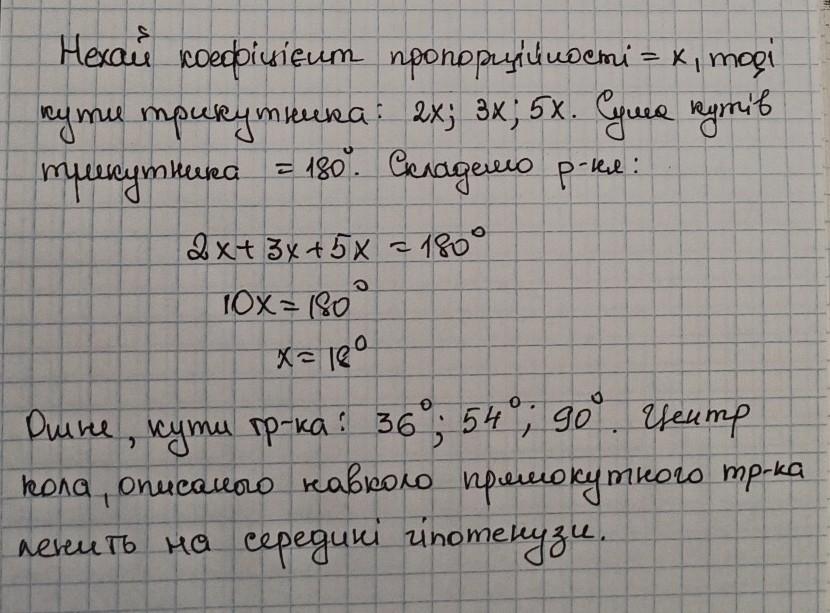 Нехай коефіцієнт пропорційності = x, тоді
кути трикутника: 2x; 3x; 5x. Сума кутів
трикутника = 180°. Складемо р-ня:
2x + 3x + 5x = 180°
10x = 180°
x = 18°
Отже, кути тр-ка: 36°; 54°; 90°. Центр
кола, описаного навколо прямокутного тр-ка
лежить на середині гіпотенузи.